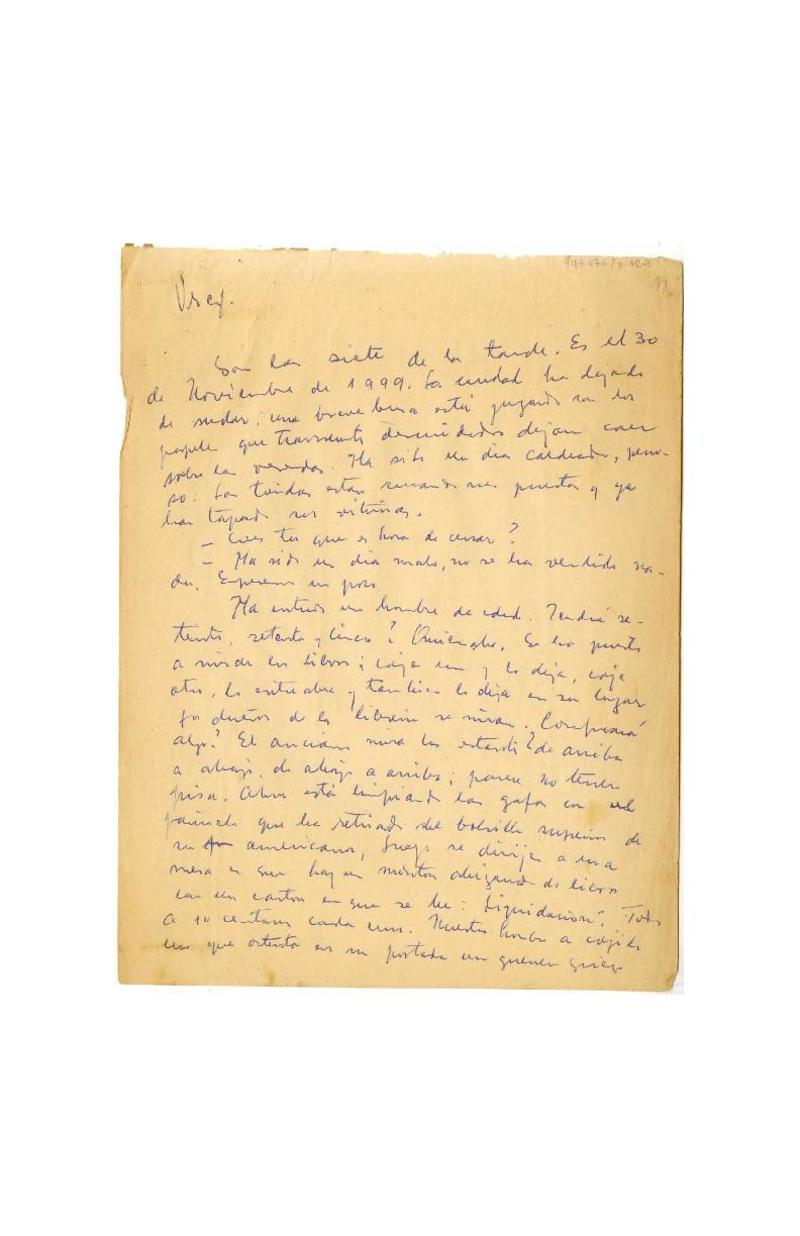 Son las siete de la tarde. Es el 30
de Noviembre de 1999. La ciudad ha dejado
de sudar; una breve brisa está jugando con los
papeles que transeuntes descuidados dejan caer
sobre las veredas. Ha sido un dia caldeado, peno-
so. Las tiendas estan cerrando sus puertas y ya
han tapado sus vitrinas.
— Crees tu que es hora de cerrar?
— Ha sido un dia malo, no se ha vendido na-
da. Esperemos un poco.
Ha entrado un hombre de edad. Tendrá se-
tenta, setenta y cinco? Quien sabe. Se ha puesto
a mirar los libros; coje uno y lo deja, coje
otro, lo entreabre y tambien lo deja en su lugar
Los dueños de la libreria se miran. Comprará
algo? El anciano mira los estantes de arriba
a abajo, de abajo a arriba; parece no tener
prisa. Ahora está limpiando las gafas con el
pañuelo que ha retirado del bolsillo superior de
su americana, luego se dirije a una
mesa en que hay un montón de libros
con un carton en que se lee: "Liquidacion". Todo
a 10 centavos cada uno. Nuestro hombre a cojido
uno que ostenta en su portada un guerrero griego